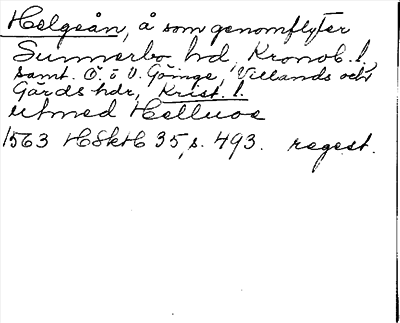 Helgeån, å som genomflyter
Sunnerbo hd, Kronob. l.,
samt. Ö. o V. Göinge, Villands och
Gärds hdr, Krist. l.
utmed Helluoe
1563 HSkH 35, s. 493. regest.